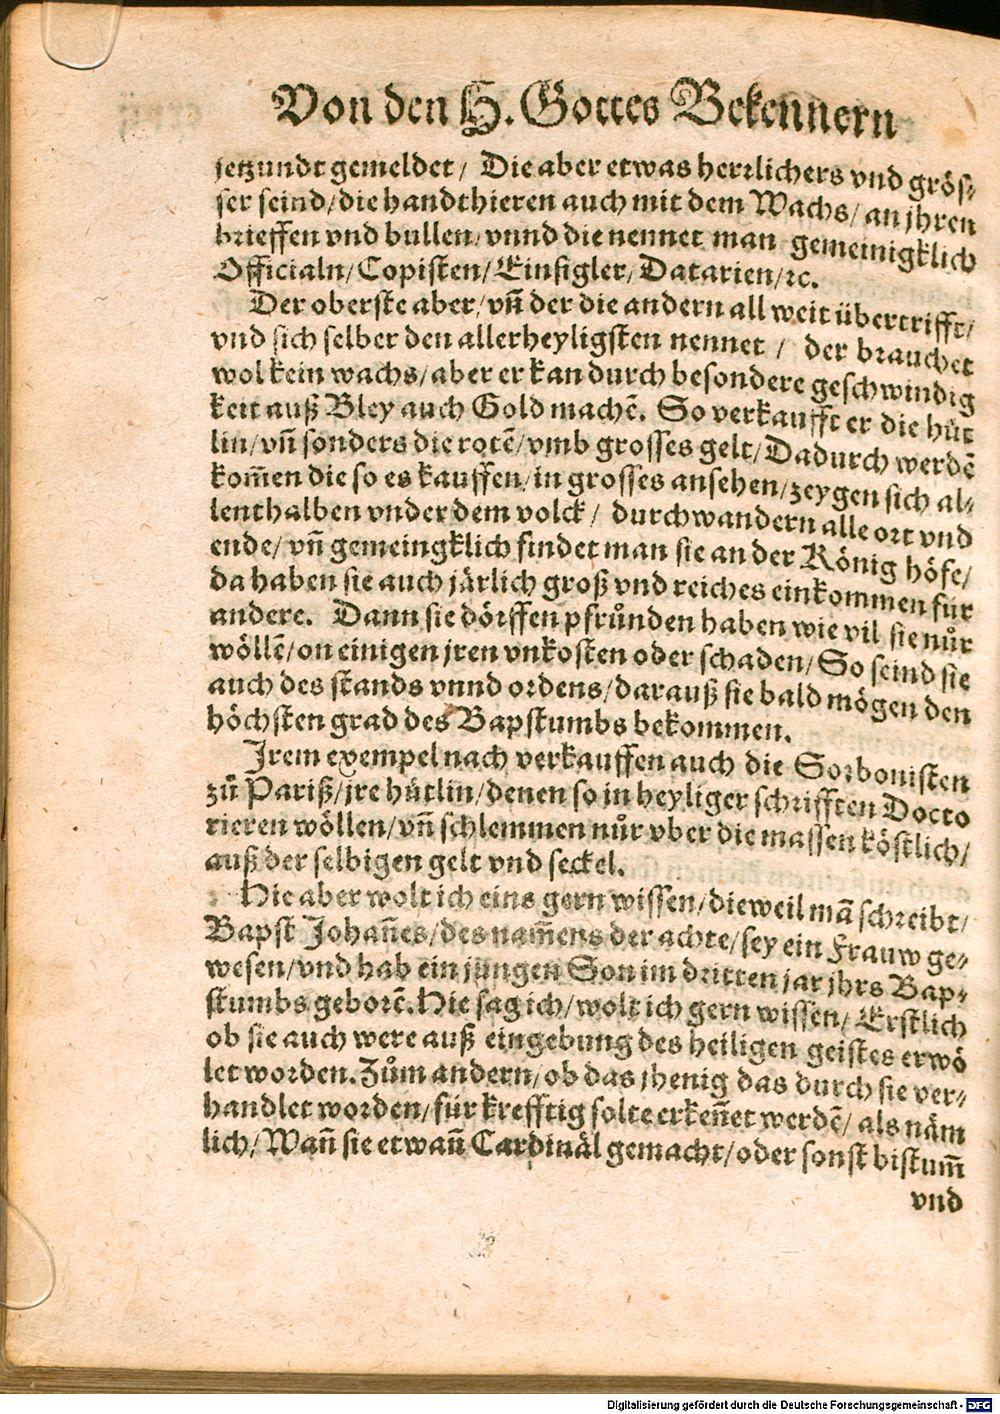 Von den H. Gottes Bekennern
jetzundt gemeldet / Die aber etwas herꝛlichers vnd grös⸗
ser seind/die handthieren auch mit dem Wachs/ an jhren
brieffen vnd bullen/ vnnd die nennet man gemeinigklich
Officialn/Copisten/Einsigler/Datarien/ꝛc.
Der oberste aber/vñ der die andern all weit übertrifft/
vnd sich selber den allerheyligsten nennet / der brauchet
wol kein wachs/aber er kan durch besondere geschwindig
keit auß Bley auch Gold machẽ. So verkaufft er die hüt
lin/vñ sonders die rotẽ/vmb grosses gelt/Dadurch werdẽ
kom̃en die so es kauffen/in grosses ansehen/zeygen sich al⸗
lenthalben vnder dem volck / durchwandern alle ort vnd
ende/vñ gemeingklich findet man sie an der König höfe/
da haben sie auch järlich groß vnd reiches einkommen für
andere. Dann sie dörffen pfrůnden haben wie vil sie nůr
wöllẽ/on einigen jren vnkosten oder schaden/So seind sie
auch des stands vnnd ordens/darauß sie bald mögen den
höchsten grad des Bapstumbs bekommen.
Jrem exempel nach verkauffen auch die Sorbonisten
zů Pariß/jre hütlin/denen so in heyliger schrifften Docto
rieren wöllen/vñ schlemmen nůr vber die massen köstlich/
auß der selbigen gelt vnd seckel.
Hie aber wolt ich eins gern wissen/dieweil mã schreibt/
Bapst Johañes/des nam̃ens der achte/sey ein Frauw ge⸗
wesen/vnd hab ein jungen Son im dritten jar jhrs Bap⸗
stumbs geborẽ.Hie sag ich/wolt ich gern wissen/ Erstlich
ob sie auch were auß eingebung des heiligen geistes erwö
let worden.Zům andern/ob das jhenig das durch sie ver⸗
handlet worden/für krefftig solte erkeñet werdẽ/ als näm
lich/Wañ sie etwañ Cardinäl gemacht/oder sonst bistum̃
vnd
Digitalisierung gefördert durch die Deutsche Forschungsgemeinschaft - DFG